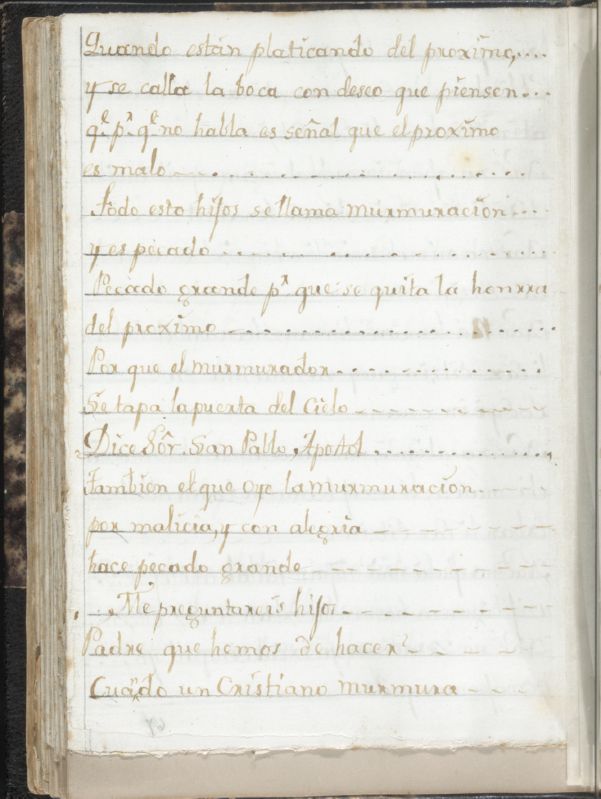 Quando están platicando del proximo,....
y se calla la boca con deseo que piensen...
qe. pr. qe no habla es señal que el proximo
es malo
Todo esto hijos se llama murmuración....
y es pecado
Pecado grande pr. que se quita la honrra
del proximo
Por que el murmurador
Se tapa la puerta del Cielo
Dice Sôr. San Pablo, Apostol
Tambien el que oye la murmuración
por malicia, y con alegria
hace pecado grande
Me preguntareis hijos
Padre que hemos de hacer?
Cuãdo un Cristiano murmura